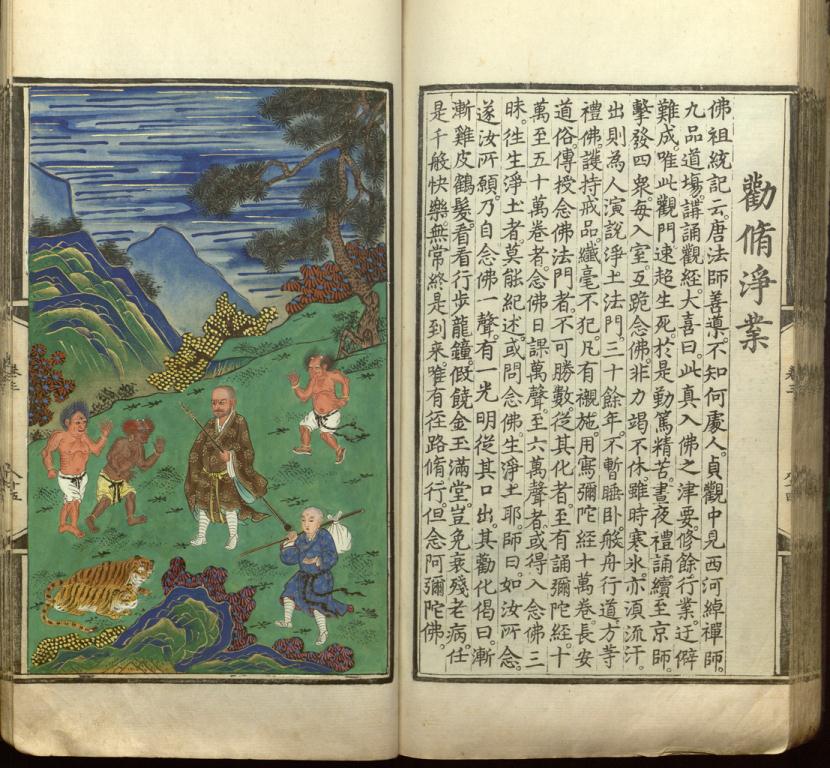 勸脩淨業
佛祖統記云。唐法師善導。不知何處人。貞觀中見西河綽禪師。
九品道場。講誦觀經大喜曰。此真入佛之津要。修餘行業。迂僻
難成。唯此觀門。速超生死。於是勤篤精苦。晝夜禮誦。續至京師。
擊發四衆。每入室互跪念佛。非力竭不休。雖時寒氷。亦湏流汗。
出則為人演說淨土法門。三十餘年。不暫睡卧。般舟行道。方等
禮佛。護持戒品。纖毫不犯。凡有襯施。用寫彌陀經十萬卷。長安
道俗。傳授念佛法門者。不可勝數。從其化者。至有誦彌陀經。十
萬至五十萬卷者。念佛日課萬聲。至六萬聲者。或得入念佛三
昧。徃生淨土者。莫能紀述。或問念佛生淨土耶。師曰。如汝所念。
遂汝所願。乃自念佛一聲。有一光明。從其口出。其勸化偈曰。漸
漸雞皮鶴髮。看看行步龍鐘。假饒金玉滿堂。豈免衰殘老病。任
是千般快樂。無常終是到来。唯有徑路脩行。但念阿彌陀佛。